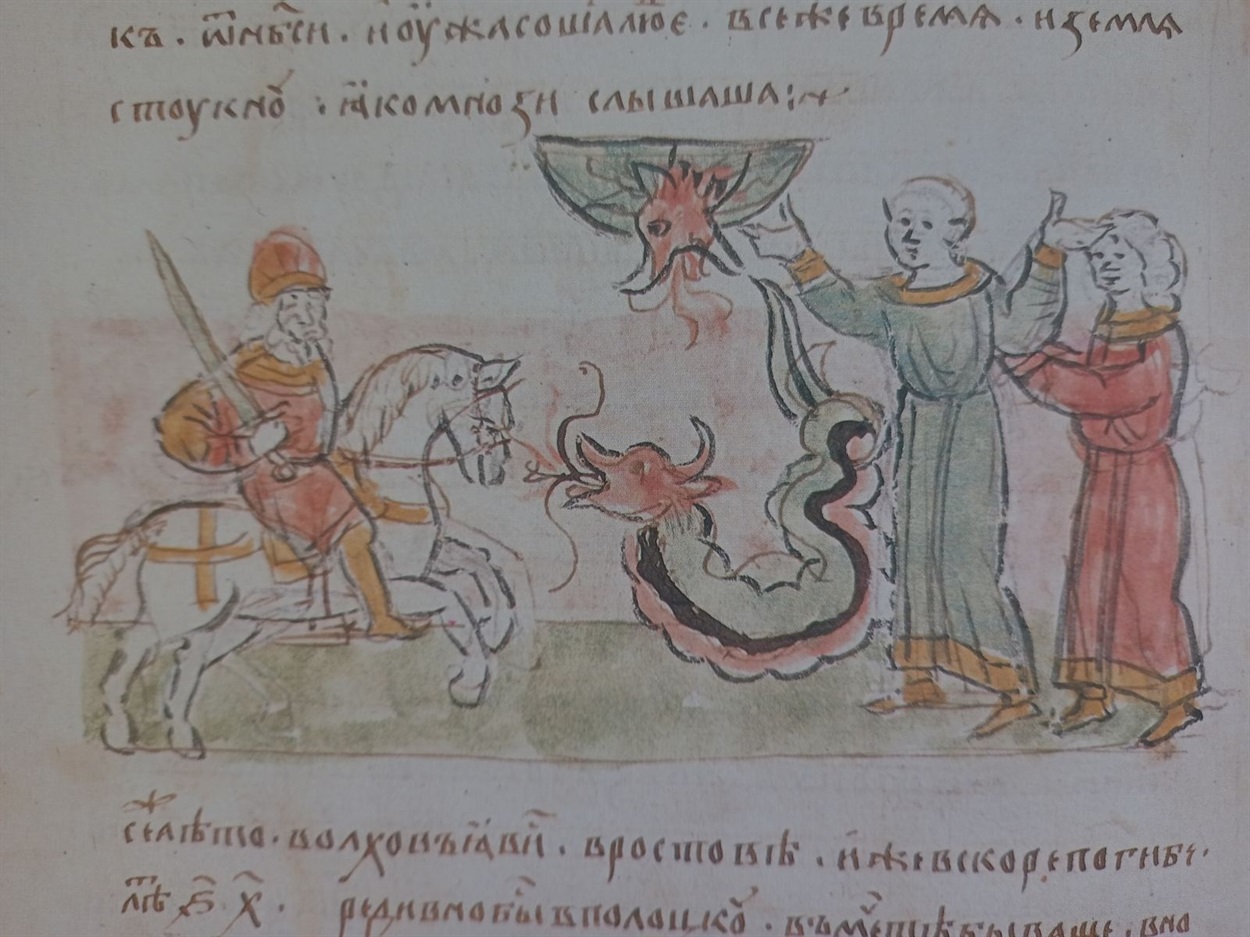 къ . ѿ нб҃си . и оужасошаⷭ҇ лю҃е . в се же времѧ . и землѧ
стоукноⷡ҇ . ꙗко мноѕи слышаша :~
сеⷤ лѣто . волховъ ꙗви҇ . в ростовѣ . иже вскоре погибе .
лѣⷮ ҂ѕ҃ х҃ . редивно бы в полоцкоⷭ҇ . въ меⷱ҇тѣ бываше . в но